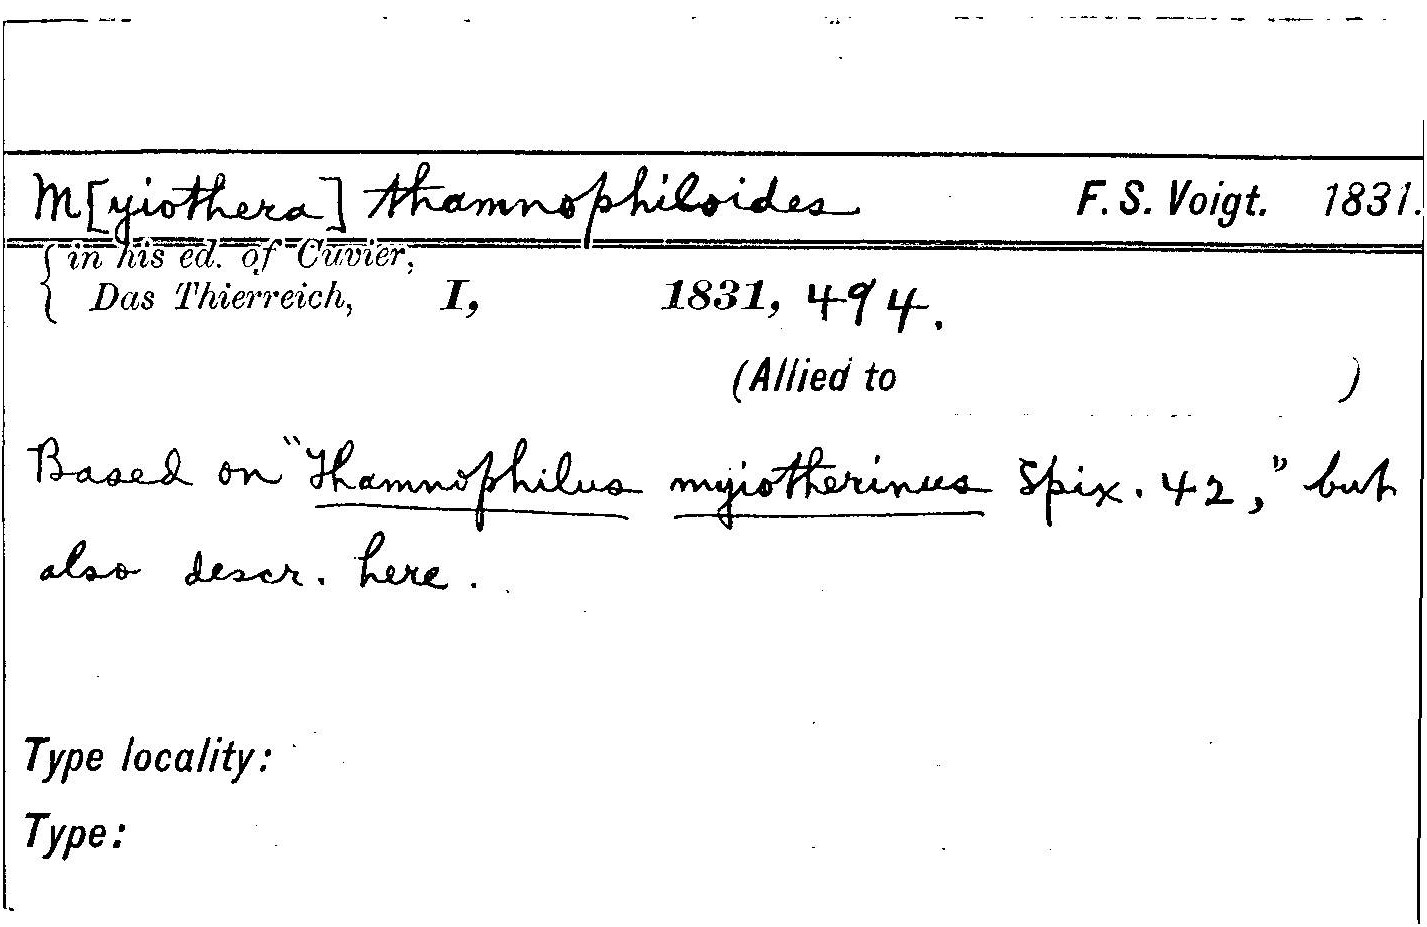 M[yiothera] thamnophiloides F. S. Voigt. 1831.
{ in his ed. of Cuvier,
Das Thierreich, I, 1831, 494.
(Allied to )
Based on "Thamnophilus myiotherinus Spix. 42," but
also descr. here.
Type locality:
Type: